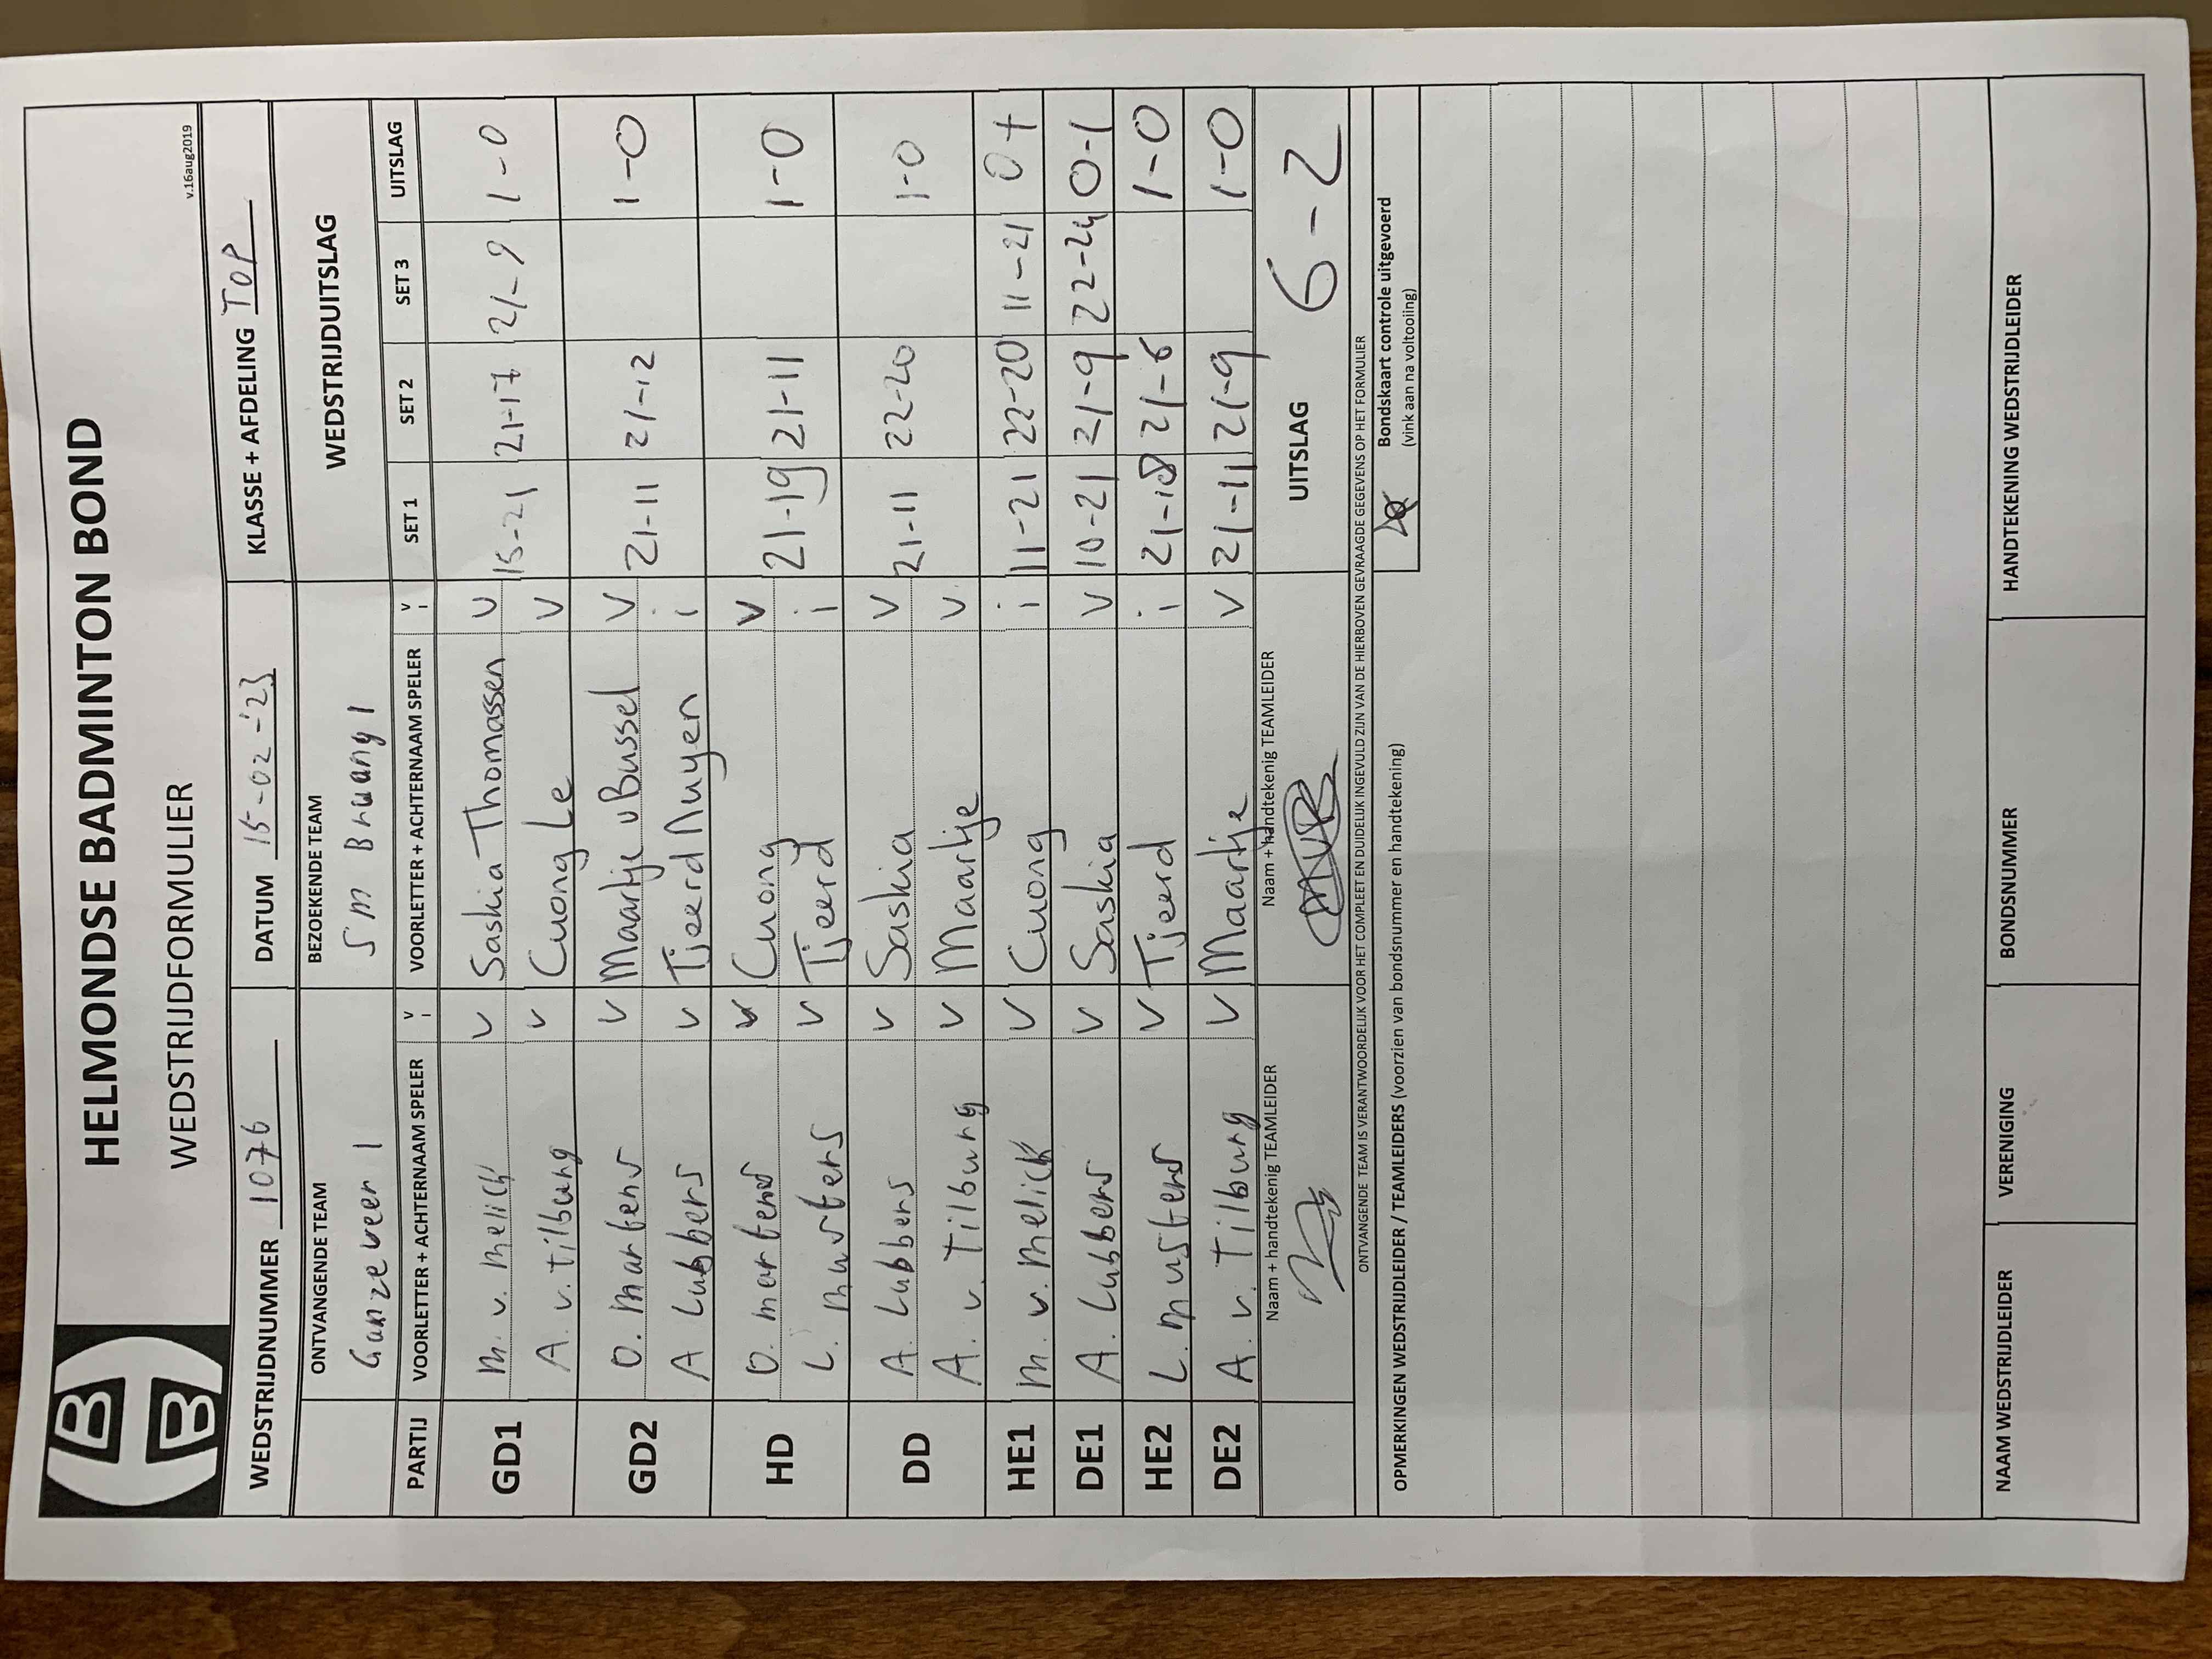 HELMONDSE BADMINTON BOND
WEDSTRIJDFORMULIER
v.16aug2019
WEDSTRIJDNUMMER 1076 DATUM 15-02-'23 KLASSE + AFDELING TOP
ONTVANGENDE TEAM BEZOEKENDE TEAM WEDSTRIJDUITSLAG
Ganzeveer 1 SM Brwang 1
PARTIJ VOORLETTER + ACHTERNAAM SPELER V i VOORLETTER + ACHTERNAAM SPELER V i SET 1 SET 2 SET 3 UITSLAG
GD1 M. v. Melick V Saskia Thomassen V 15-21 21-17 21-9 1-0
A. v. Tilburg V Cuong Le V
GD2 O. Martens V Maartje v Bussel V 21-11 21-12 1-0
A Lubbers V Tjeerd Nuyen i
HD O. Martens V Cuong V 21-19 21-11 1-0
L. Musters V Tjeerd i
DD A. Lubbers V Saskia V 21-11 22-20 1-0
A. v. Tilburg V Maartje V
HE1 M. v. Melick V Cuong i 11-21 22-20 11-21 0-1
DE1 A. Lubbers V Saskia V 10-21 21-9 22-24 0-1
HE2 L. Musters V Tjeerd i 21-18 21-6 1-0
DE2 A. v. Tilburg V Maartje V 21-11 21-9 1-0
Naam + handtekenig TEAMLEIDER Naam + handtekenig TEAMLEIDER UITSLAG 6-2
ONTVANGENDE TEAM IS VERANTWOORDELIJK VOOR HET COMPLEET EN DUIDELIJK INGEVULD ZIJN VAN DE HIERBOVEN GEVRAAGDE GEGEVENS OP HET FORMULIER
OPMERKINGEN WEDSTRIJDLEIDER / TEAMLEIDERS (voorzien van bondsnummer en handtekening) Bondskaart controle uitgevoerd
(vink aan na voltooiing)
NAAM WEDSTRIJDLEIDER VERENIGING BONDSNUMMER HANDTEKENING WEDSTRIJDLEIDER